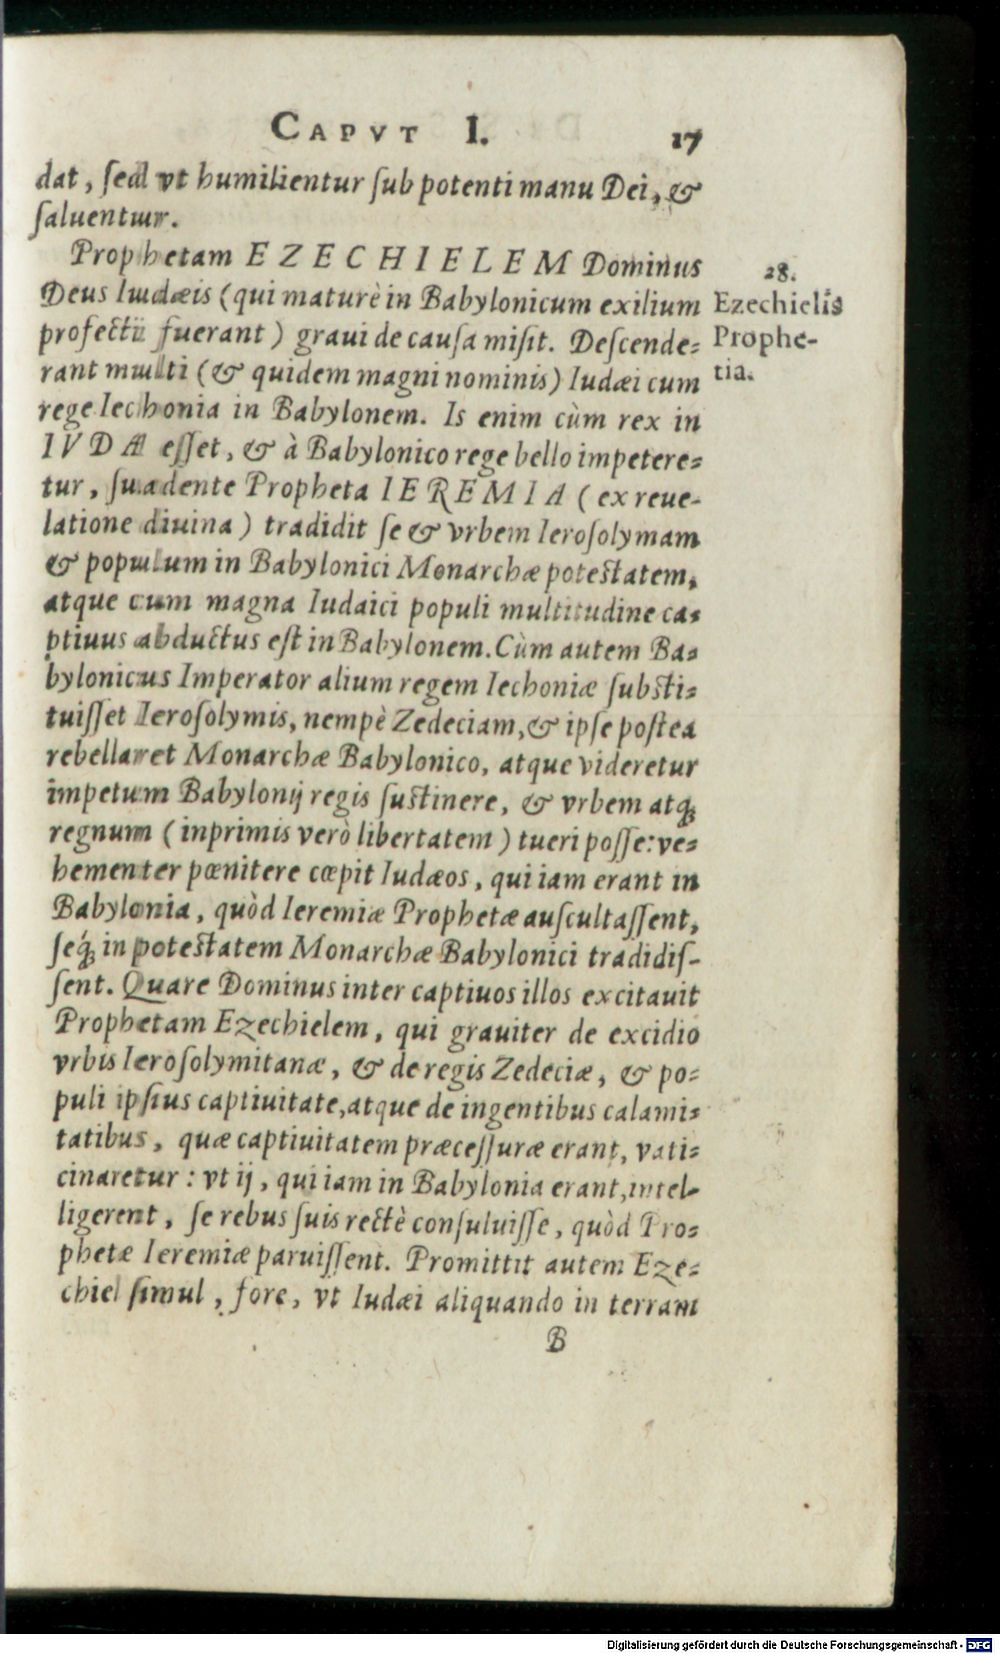 CAPVT I. 17
dat, sed vt humilientur sub potenti manu Dei, &
saluentur.
Prophetam EZECHIELEM Dominus
Deus Iudæis (qui maturè in Babylonicum exilium
profecti fuerant) graui de causa misit. Descende-
rant multi (& quidem magni nominis) Iudæi cum
rege Iechonia in Babylonem. Is enim cùm rex in
IVDÆ esset, & à Babylonico rege bello impetere-
tur, suadente Propheta IEREMIA (ex reue-
latione diuina) tradidit se & vrbem Ierosolymam
& populum in Babylonici Monarchæ potestatem,
atque cum magna Iudaici populi multitudine ca-
ptiuus abductus est in Babylonem. Cùm autem Ba-
bylonicus Imperator alium regem Iechoniæ substi-
tuisset Ierosolymis, nempè Zedeciam, & ipse postea
rebellaret Monarchæ Babylonico, atque videretur
impetum Babylonij regis sustinere, & vrbem atq;
regnum (inprimis verò libertatem) tueri posse: ve-
hementer pœnitere cœpit Iudæos, qui iam erant in
Babylonia, quòd Ieremiæ Prophetæ auscultassent,
seq́; in potestatem Monarchæ Babylonici tradidis-
sent. Quare Dominus inter captiuos illos excitauit
Prophetam Ezechielem, qui grauiter de excidio
vrbis Ierosolymitanæ, & de regis Zedeciæ, & po-
puli ipsius captiuitate, atque de ingentibus calami-
tatibus, quæ captiuitatem præcessuræ erant, vati-
cinaretur: vt ij, qui iam in Babylonia erant, intel-
ligerent, se rebus suis rectè consuluisse, quòd Pro-
phetæ Ieremiæ paruissent. Promittit autem Eze-
chiel simul, fore, vt Iudæi aliquando in terram
B
28.
Ezechielis
Prophe-
tia.
Digitalisierung gefördert durch die Deutsche Forschungsgemeinschaft - DFG